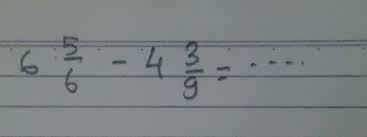 6 5/6 - 4 3/9 = ....